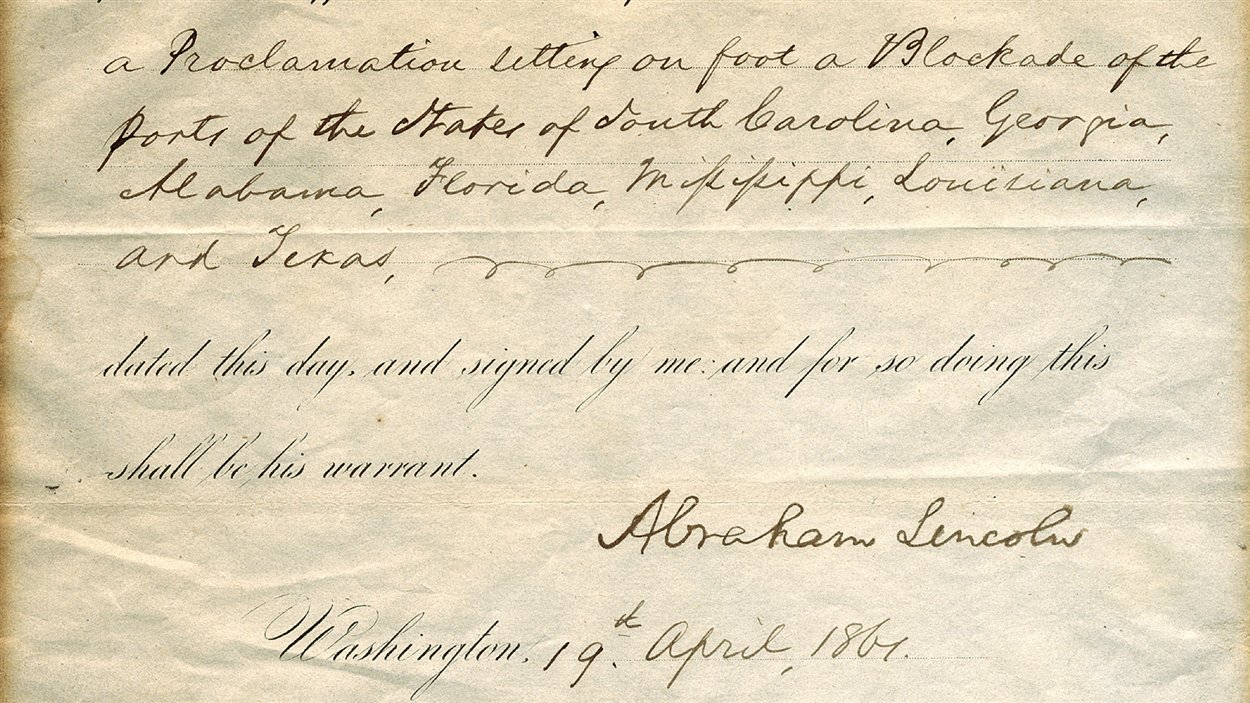 a Proclamation setting on foot a Blockade of the
ports of the States of South Carolina, Georgia,
Alabama, Florida, Mississippi, Louisiana,
and Texas,
dated this day, and signed by me: and for so doing this
shall be his warrant.
Abraham Lincoln
Washington, 19th. April, 1861.